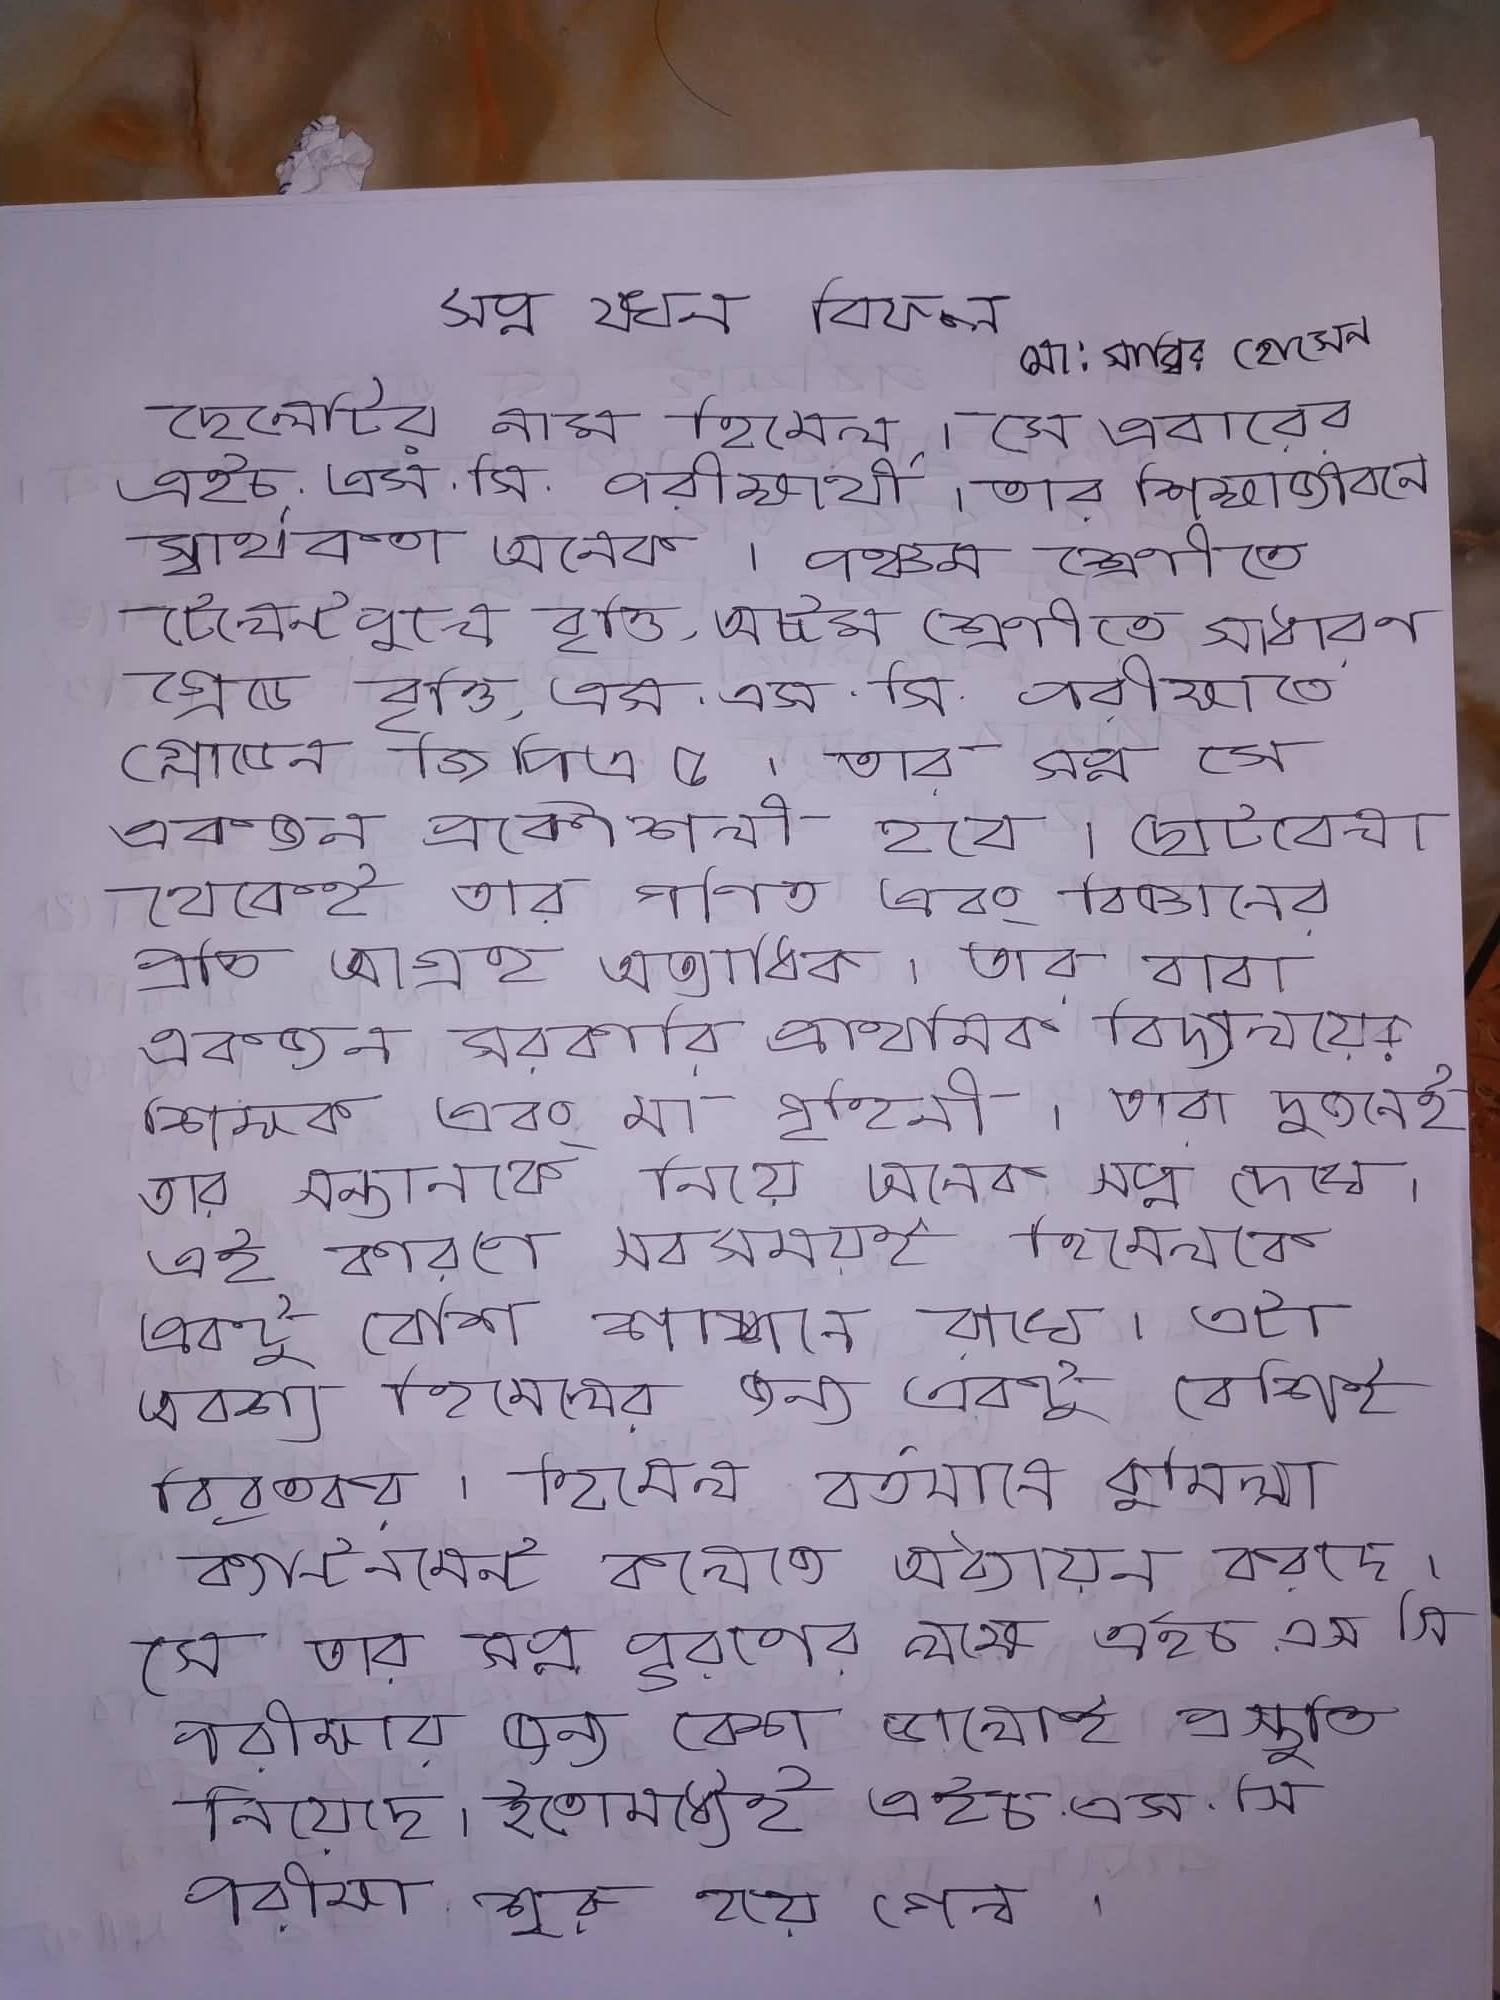 সপ্ন যখন বিফল
মো: সাব্বির হোসেন
ছেলেটির নাম হিমেল। সে এবারের
এইচ.এস.সি. পরীক্ষার্থী। তার শিক্ষাজীবনে
স্বার্থকতা অনেক। পঞ্চম শ্রেণীতে
টেলেন্টপুলে বৃত্তি, অষ্টম শ্রেণীতে সাধারণ
গ্রেডে বৃত্তি, এস.এস.সি. পরীক্ষাতে
গোল্ডেন জিপিএ ৫। তার সপ্ন সে
একজন প্রকৌশলী হবে। ছোটবেলা
থেকেই তার গণিত এবং বিজ্ঞানের
প্রতি আগ্রহ অত্যাধিক। তার বাবা
একজন সরকারি প্রাথমিক বিদ্যালয়ের
শিক্ষক এবং মা গৃহিনী। তারা দুজনেই
তার সন্তানকে নিয়ে অনেক সপ্ন দেখে।
এই কারণে সবসময়ই হিমেলকে
একটু বেশি শাসনে রাখে। এটা
অবশ্য হিমেলের জন্য একটু বেশিই
বিরতকর। হিমেল বর্তমানে কুমিল্লা
ক্যান্টনমেন্ট কলেজে অধ্যায়ন করছে।
সে তার সপ্ন পুরণের লক্ষে এইচ.এস সি
পরীক্ষার জন্য বেশ ভালোই প্রস্তুতি
নিয়েছে। ইতোমধ্যেই এইচ.এস.সি
পরীক্ষা শুরু হয়ে গেল।